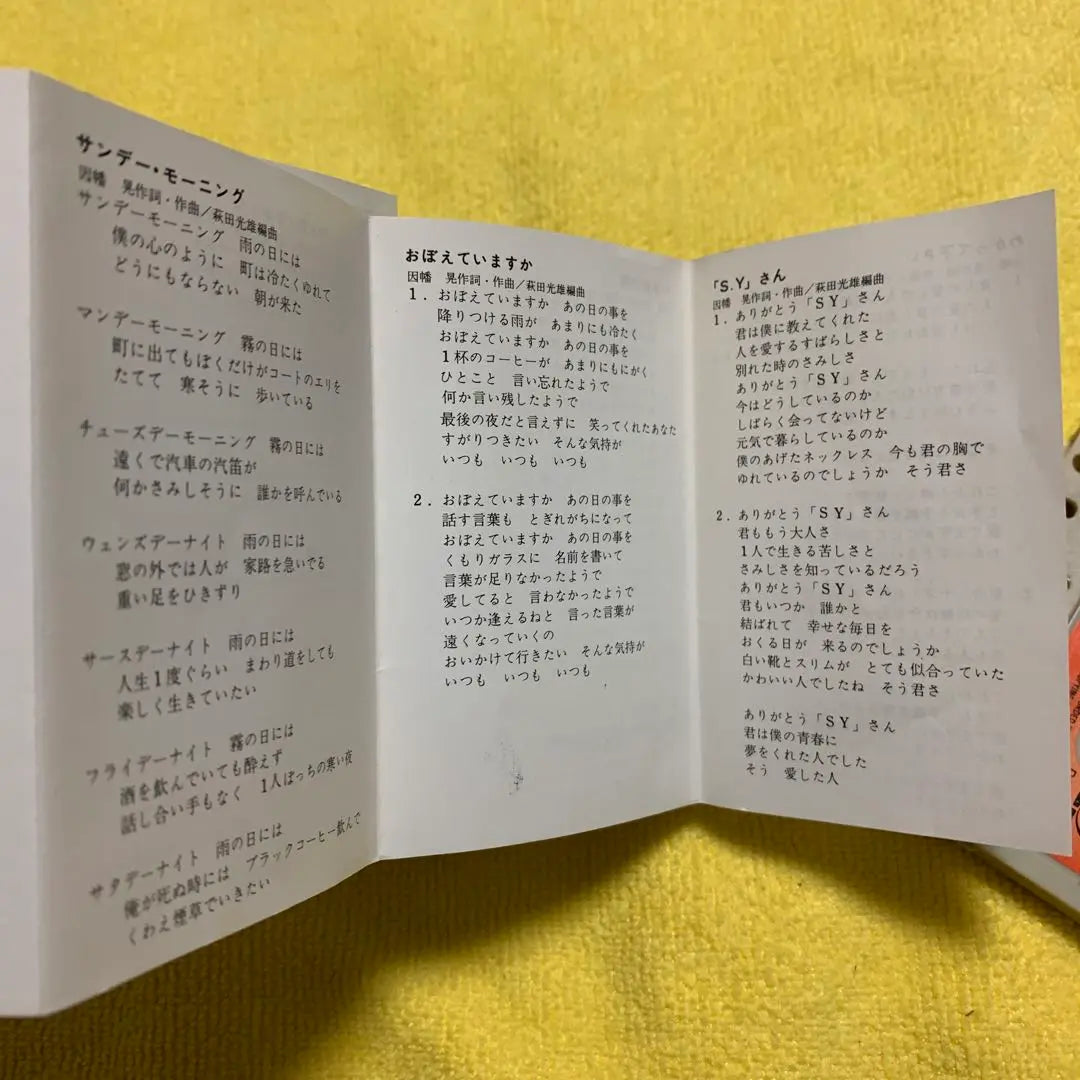 サンデー・モーニング
因幡 晃作詞・作曲/萩田光雄編曲
サンデーモーニング 雨の日には
僕の心のように 町は冷たくゆれて
どうにもならない 朝が来た
マンデーモーニング 霧の日には
町に出てもぼくだけがコートのエリを
たてて 寒そうに 歩いている
チューズデーモーニング 霧の日には
遠くで汽車の汽笛が
何かさみしそうに 誰かを呼んでいる
ウェンズデーナイト 雨の日には
窓の外では人が 家路を急いでる
重い足をひきずり
サースデーナイト 雨の日には
人生1度ぐらい まわり道をしても
楽しく生きていたい
フライデーナイト 霧の日には
酒を飲んでいても酔えず
話し合い手もなく 1人ぼっちの寒い夜
サタデーナイト 雨の日には
俺が死ぬ時には ブラックコーヒー飲んで
くわえ煙草でいきたい
おぼえていますか
因幡 晃作詞・作曲/萩田光雄編曲
1. おぼえていますか あの日の事を
降りつける雨が あまりにも冷たく
おぼえていますか あの日の事を
1杯のコーヒーが あまりにもにがく
ひとこと 言い忘れたようで
何か言い残したようで
最後の夜だと言えずに 笑ってくれたあなた
すがりつきたい そんな気持が
いつも いつも いつも
2. おぼえていますか あの日の事を
話す言葉も とぎれがちになって
おぼえていますか あの日の事を
くもりガラスに 名前を書いて
言葉が足りなかったようで
愛してると 言わなかったようで
いつか逢えるねと 言った言葉が
遠くなっていくの
おいかけて行きたい そんな気持が
いつも いつも いつも
「S.Y」さん
因幡 晃作詞・作曲/萩田光雄編曲
1. ありがとう「SY」さん
君は僕に教えてくれた
人を愛するすばらしさと
別れた時のさみしさ
ありがとう「SY」さん
今はどうしているのか
しばらく会ってないけど
元気で暮らしているのか
僕のあげたネックレス 今も君の胸で
ゆれているのでしょうか そう君さ
2. ありがとう「SY」さん
君ももう大人さ
1人で生きる苦しさと
さみしさを知っているだろう
ありがとう「SY」さん
君もいつか 誰かと
結ばれて 幸せな毎日を
おくる日が 来るのでしょうか
白い靴とスリムが とても似合っていた
かわいい人でしたね そう君さ
ありがとう「SY」さん
君は僕の青春に
夢をくれた人でした
そう 愛した人